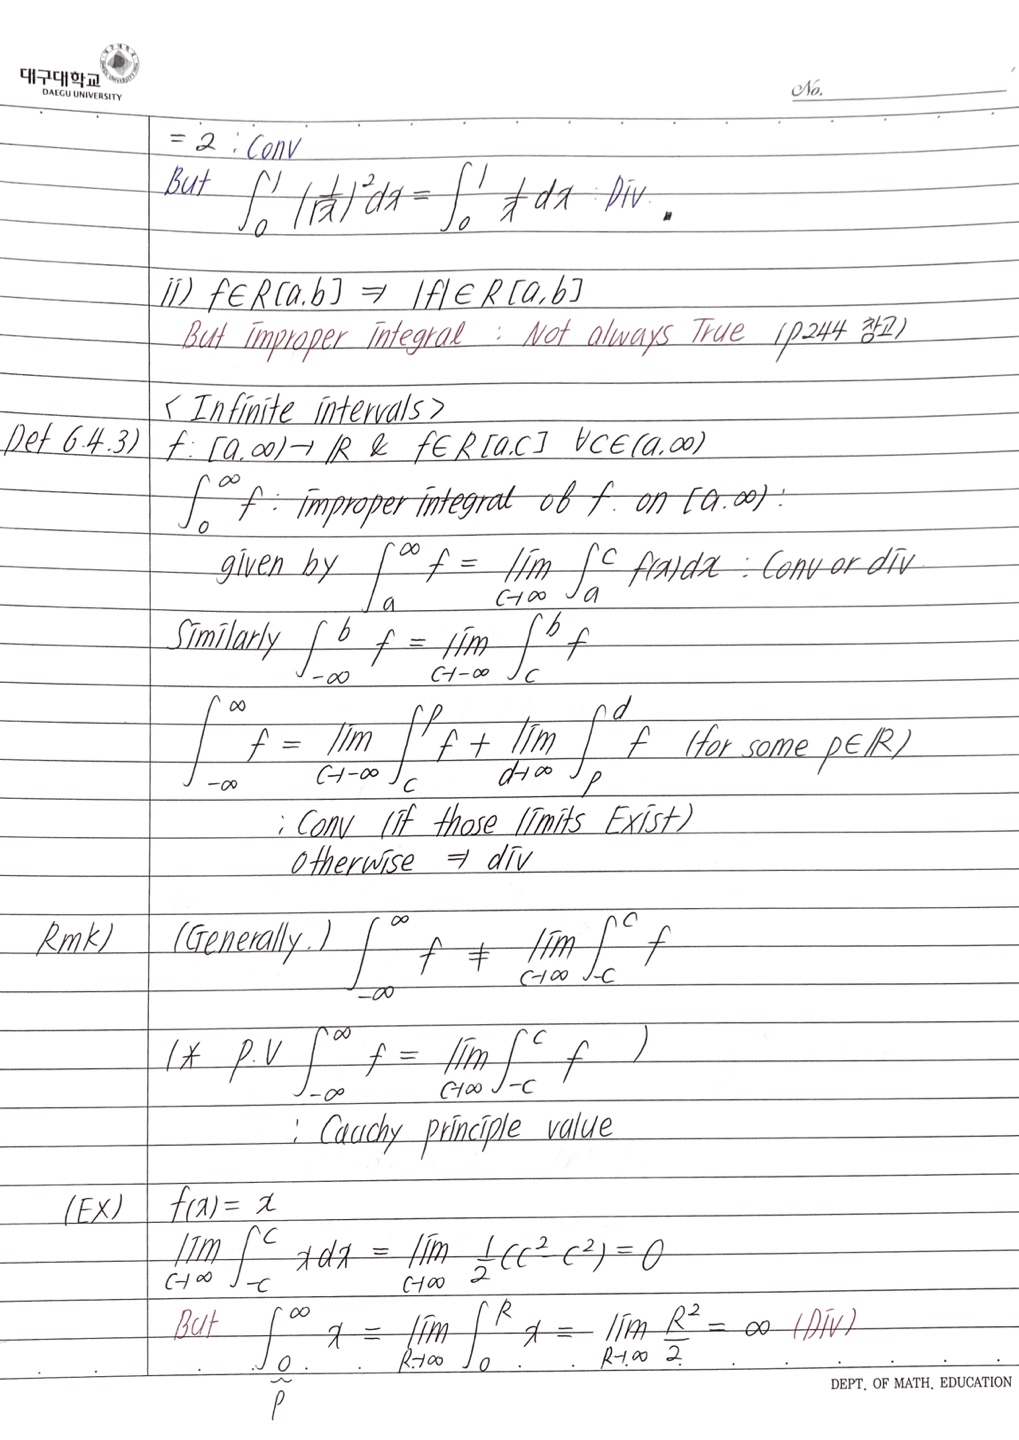 대구대학교
DAEGU UNIVERSITY
No.
= 2 : Conv
But ∫₀¹ (1/√x)² dx = ∫₀¹ 1/x dx : Div.
ii) f∈R[a,b] ⇒ |f|∈R[a,b]
But improper integral : Not always True (p244 참고)
<Infinite intervals>
Def 6.4.3) f: [a,∞)→ℝ & f∈R[a,c] ∀c∈(a,∞)
∫₀^∞ f : improper integral of f on [a,∞) :
given by ∫_a^∞ f = lim_{c→∞} ∫_a^c f(x)dx : Conv or div
Similarly ∫_{-∞}^b f = lim_{c→-∞} ∫_c^b f
∫_{-∞}^∞ f = lim_{c→-∞} ∫_c^p f + lim_{d→∞} ∫_p^d f (for some p∈ℝ)
: Conv (if those limits Exist)
otherwise ⇒ div
Rmk) (Generally.) ∫_{-∞}^∞ f ≠ lim_{c→∞} ∫_{-c}^c f
(* P.V ∫_{-∞}^∞ f = lim_{c→∞} ∫_{-c}^c f )
: Cauchy principle value
(EX) f(x) = x
lim_{c→∞} ∫_{-c}^c x dx = lim_{c→∞} 1/2 (c² - c²) = 0
But ∫₀^∞ x = lim_{R→∞} ∫₀^R x = lim_{R→∞} R²/2 = ∞ (Div)
p
DEPT. OF MATH. EDUCATION